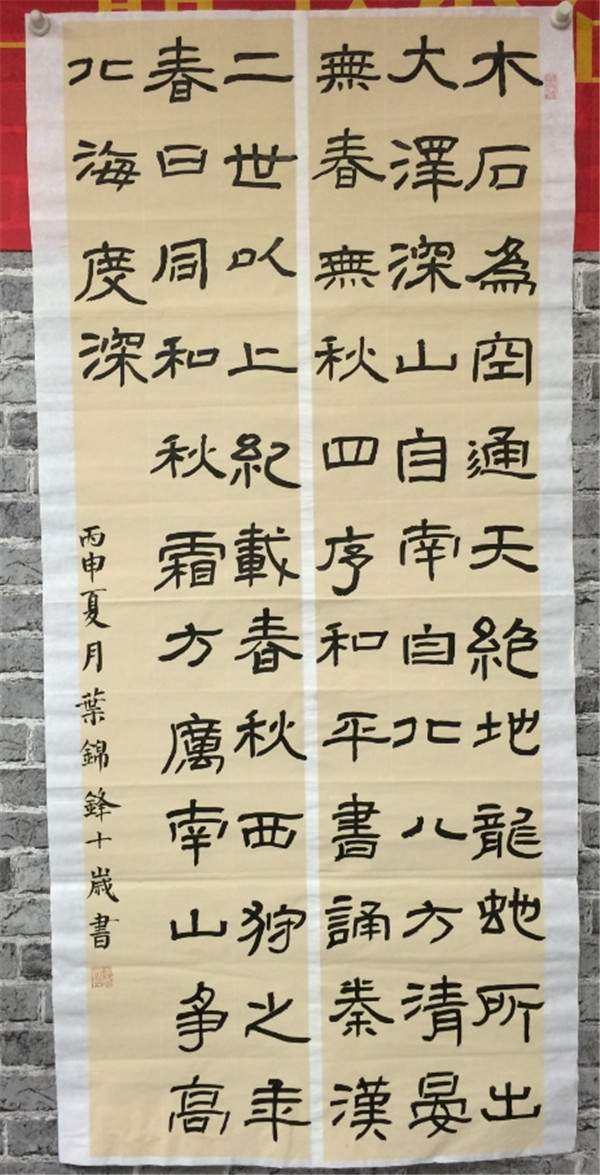 木石為空通天絶地龍虵所出
大澤深山自南自北八方清晏
無春無秋四序和平書誦秦漢
二世以上紀載春秋西狩之年
春日同和秋霜方厲南山爭高
北海度深
丙申夏月葉錦鋒十歲書